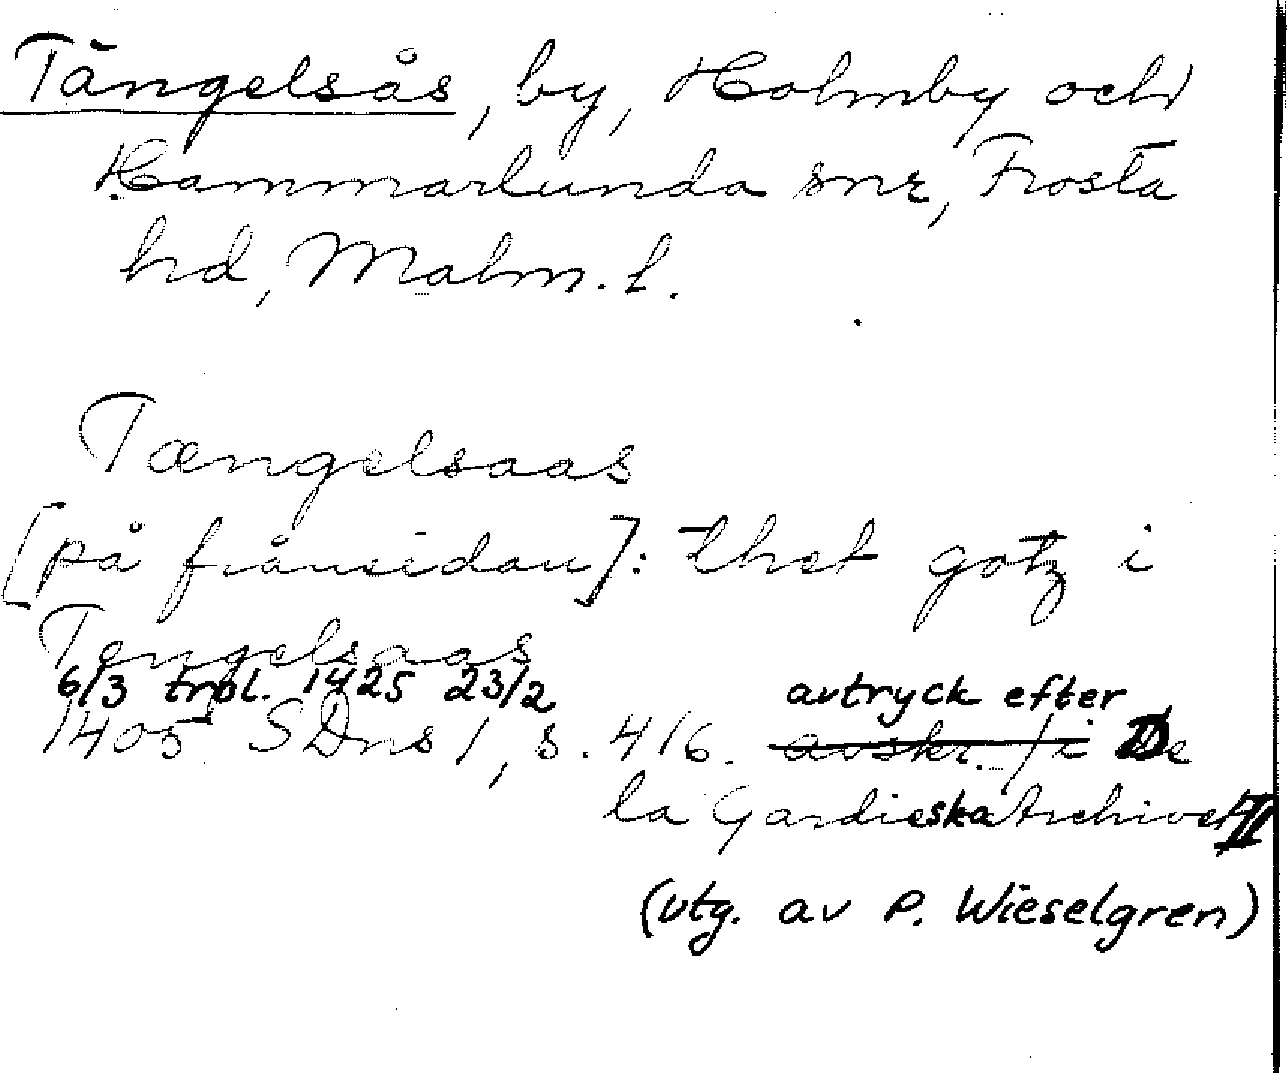 Tängelsås, by, Holmby och
Hammarlunda snr, Frosta
hd, Malm. l.
Tængelsaas
[på frånsidan]: thet gotz i
Tengelsaas
6/3 trol. 1425 23/2 avtryck efter
1405 SDns 1, s. 416. avskr. i De
la Gardieska Archivet II
(utg. av P. Wieselgren)